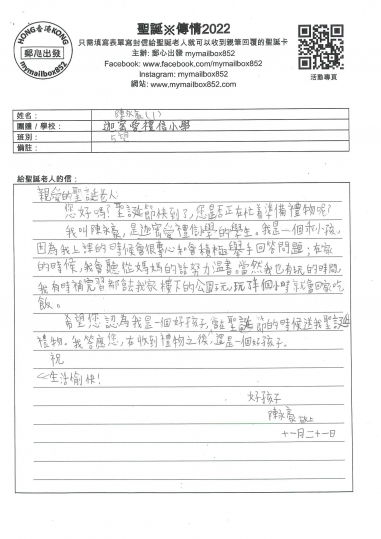 HONG 香港 KONG
郵心出發
mymailbox852
聖誕※傳情2022
只需填寫表單寫封信給聖誕老人就可以收到親筆回覆的聖誕卡
主辦: 郵心出發 mymailbox852
Facebook: www.facebook.com/mymailbox852
Instagram: mymailbox852
網站: www.mymailbox852.com
活動專頁
姓名: 陳永 (1)
團體 / 學校: 迦密愛禮信小學
班別:
備註:
給聖誕老人的信:
親愛的聖誕老人
您好嗎?聖誕節快到了,您是否正在忙着準備禮物呢?
我叫陳永,是迦密愛禮信小學的學生。我是一個乖小孩,
因為我上課的時候會很專心和會積極舉手回答問題;在家
的時候,我會聽從媽媽的話努力溫書。當然我也有玩的時間,
我有時補完習都去我家樓下的公園玩,玩了半個小時就會回家吃
飯。
希望您認為我是一個好孩子,在聖誕節的時候送我聖誕
禮物。我答應您,在收到禮物之後,還是一個好孩子。
祝
生活愉快!
好孩子
陳永 敬上
十一月二十一日